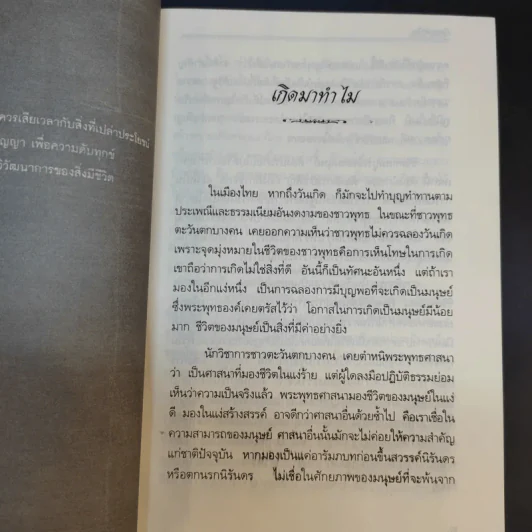 ควรเสียเวลากับสิ่งที่เปล่าประโยชน์
ญญา เพื่อความดับทุกข์
วิวัฒนาการของสิ่งมีชีวิต
เกิดมาทำไม
ในเมืองไทย หากถึงวันเกิด ก็มักจะไปทำบุญทำทานตาม
ประเพณีและธรรมเนียมอันงดงามของชาวพุทธ ในขณะที่ชาวพุทธ
ตะวันตกบางคน เคยออกความเห็นว่าชาวพุทธไม่ควรฉลองวันเกิด
เพราะจุดมุ่งหมายในชีวิตของชาวพุทธคือการเห็นโทษในการเกิด
เขาถือว่าการเกิดไม่ใช่สิ่งที่ดี อันนี้ก็เป็นทัศนะอันหนึ่ง แต่ถ้าเรา
มองในอีกแง่หนึ่ง เป็นการฉลองการมีบุญพอที่จะเกิดเป็นมนุษย์
ซึ่งพระพุทธองค์เคยตรัสไว้ว่า โอกาสในการเกิดเป็นมนุษย์มีน้อย
มาก ชีวิตของมนุษย์เป็นสิ่งที่มีค่าอย่างยิ่ง
นักวิชาการชาวตะวันตกบางคน เคยตำหนิพระพุทธศาสนา
ว่า เป็นศาสนาที่มองชีวิตในแง่ร้าย แต่ผู้ใดลงมือปฏิบัติธรรมย่อม
เห็นว่าความเป็นจริงแล้ว พระพุทธศาสนามองชีวิตของมนุษย์ในแง่
ดี มองในแง่สร้างสรรค์ อาจดีกว่าศาสนาอื่นด้วยซ้ำไป คือเราเชื่อใน
ความสามารถของมนุษย์ ศาสนาอื่นนั้นมักจะไม่ค่อยให้ความสำคัญ
แก่ชาติปัจจุบัน หากมองเป็นแค่อารัมภบทก่อนขึ้นสวรรค์นิรันดร
หรือตกนรกนิรันดร ไม่เชื่อในศักยภาพของมนุษย์ที่จะพ้นจาก